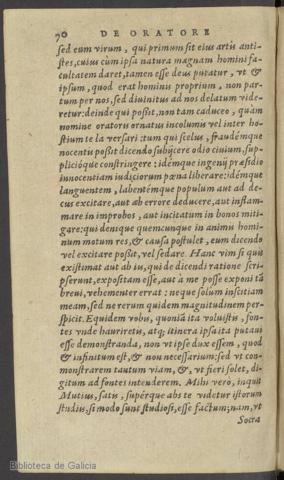 70 DE ORATORE
sed eum virum, qui primum sit eius artis anti-
stes, cuius cùm ipsa natura magnam homini fa-
cultatem daret, tamen esse deus putatur, vt &
ipsum, quod erat hominis proprium, non par-
tum per nos, sed diuinitus ad nos delatum vide-
retur: deinde qui possit, non tam caduceo, quàm
nomine oratoris ornatus incolumis vel inter ho-
stium te la versari: tum qui scelus, fraudémque
nocentis possit dicendo subijcere odio ciuium, su-
pplicióque constringere: idémque ingenij præsidio
innocentiam iudiciorum pœna liberare: idémque
languentem, labentémque populum aut ad de-
cus excitare, aut ab errore deducere, aut inflam-
mare in improbos, aut incitatum in bonos miti-
gare: qui denique quemcunque in animis homi-
num motum res, & causa postulet, eum dicendo
vel excitare possit, vel sedare. Hanc vim si quis
existimat aut ab iis, qui de dicendi ratione scri-
pserunt, expositam esse, aut à me posse exponi tã
breui, vehementer errat: neque solum inscitiam
meam, sed ne rerum quidem magnitudinem per-
spicit. Equidem vobis, quoniã ita voluistis, fon-
tes vnde hauriretis, atq; itinera ipsa ita putaui
esse demonstranda, non vt ipse dux essem, quod
& infinitum est, & non necessarium; sed vt com-
monstrarem tantum viam, &, vt fieri solet, di-
gitum ad fontes intenderem. Mihi verò, inquit
Mutius, satis, supérque abs te videtur istorum
studiis, si modo sunt studiosi, esse factum; nam, vt
Socra
Biblioteca de Galicia